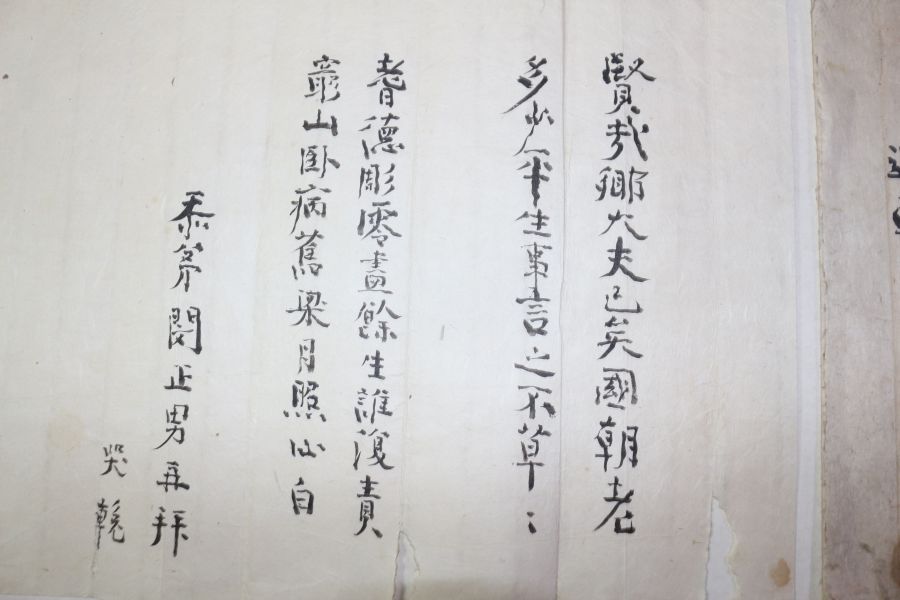 賢哉卿大夫已矣國朝老
多少平生事言之不草〻
耆德彫零盡餘生誰復責
山卧病舊梁月照心自
忝等閔正男再拜
哭輓